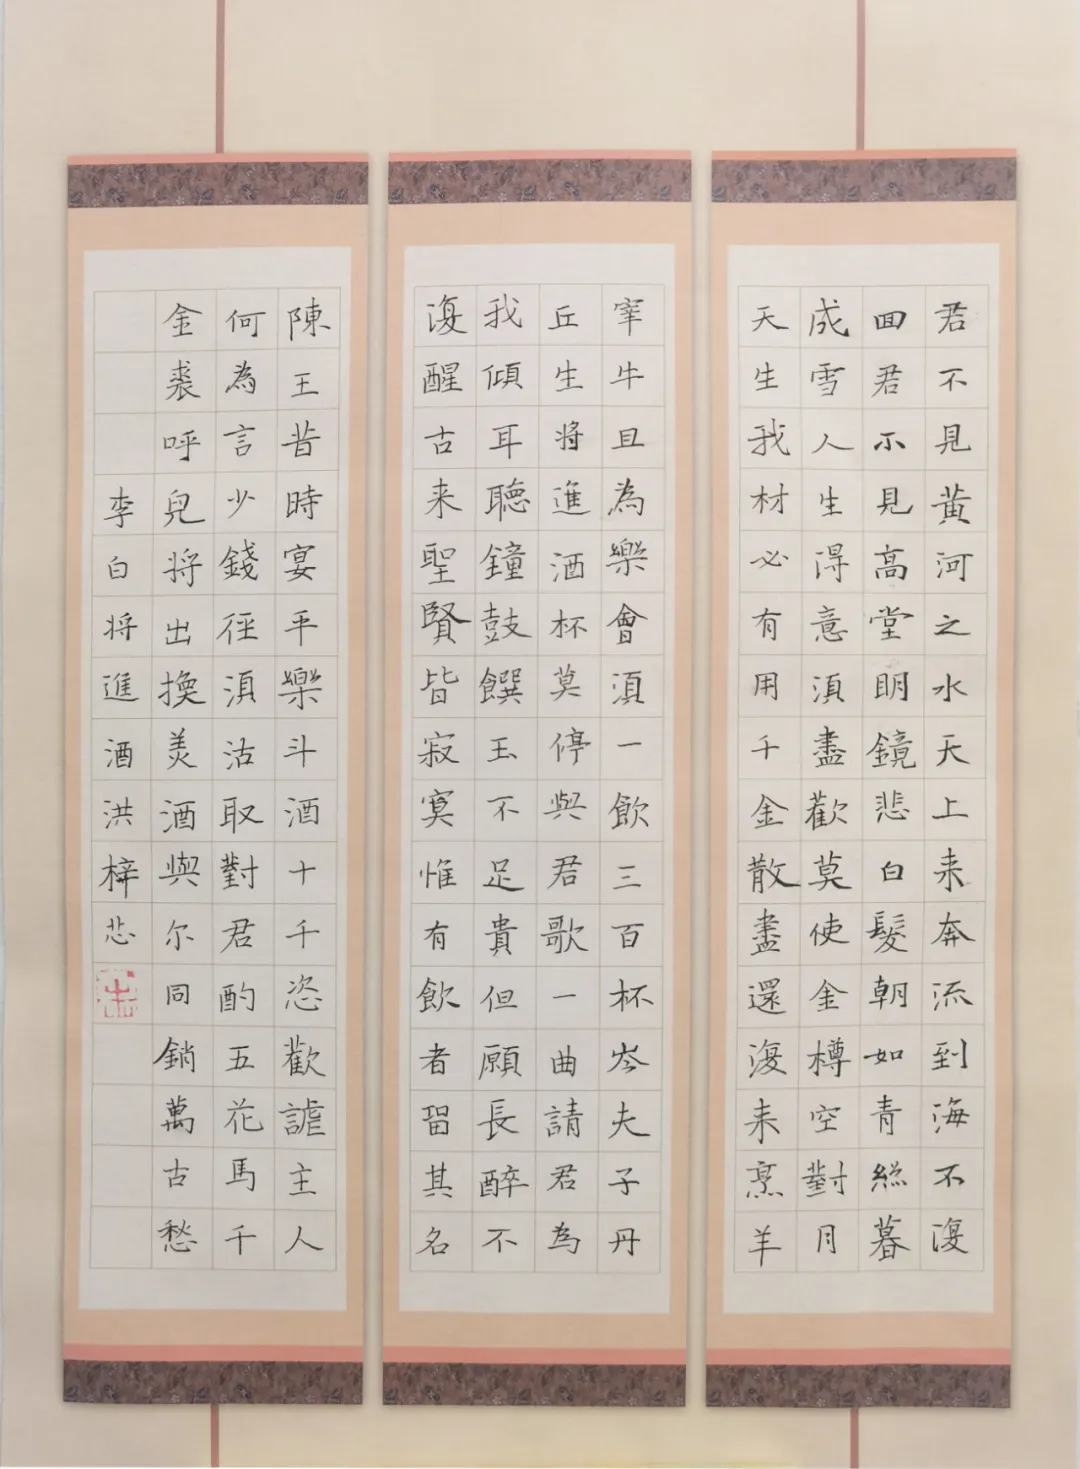 君不見黃河之水天上来奔流到海不復
回君不見高堂明鏡悲白髮朝如青絲暮
成雪人生得意須盡歡莫使金樽空對月
天生我材必有用千金散盡還復来烹羊
宰牛且為樂會須一飲三百杯岑夫子丹
丘生将進酒杯莫停與君歌一曲請君為
我傾耳聽鐘鼓饌玉不足貴但願長醉不
復醒古来聖賢皆寂寞惟有飲者留其名
陳王昔時宴平樂斗酒十千恣歡謔主人
何為言少錢徑須沽取對君酌五花馬千
金裘呼兒将出換美酒與尔同銷萬古愁
李白将進酒洪梓芯